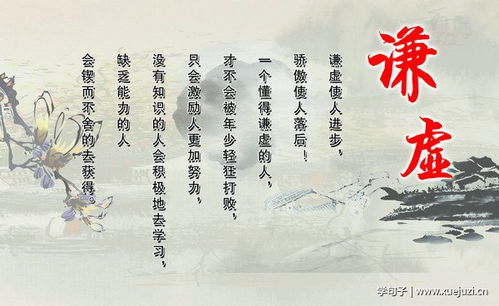 谦虚
谦虚使人进步,
骄傲使人落后!
一个懂得谦虚的人,
才不会被年少轻狂打败,
只会激励人更加努力,
没有知识的人会积极地去学习,
缺乏能力的人
会锲而不舍的去获得。
学句子 | www.xuejuzi.cn